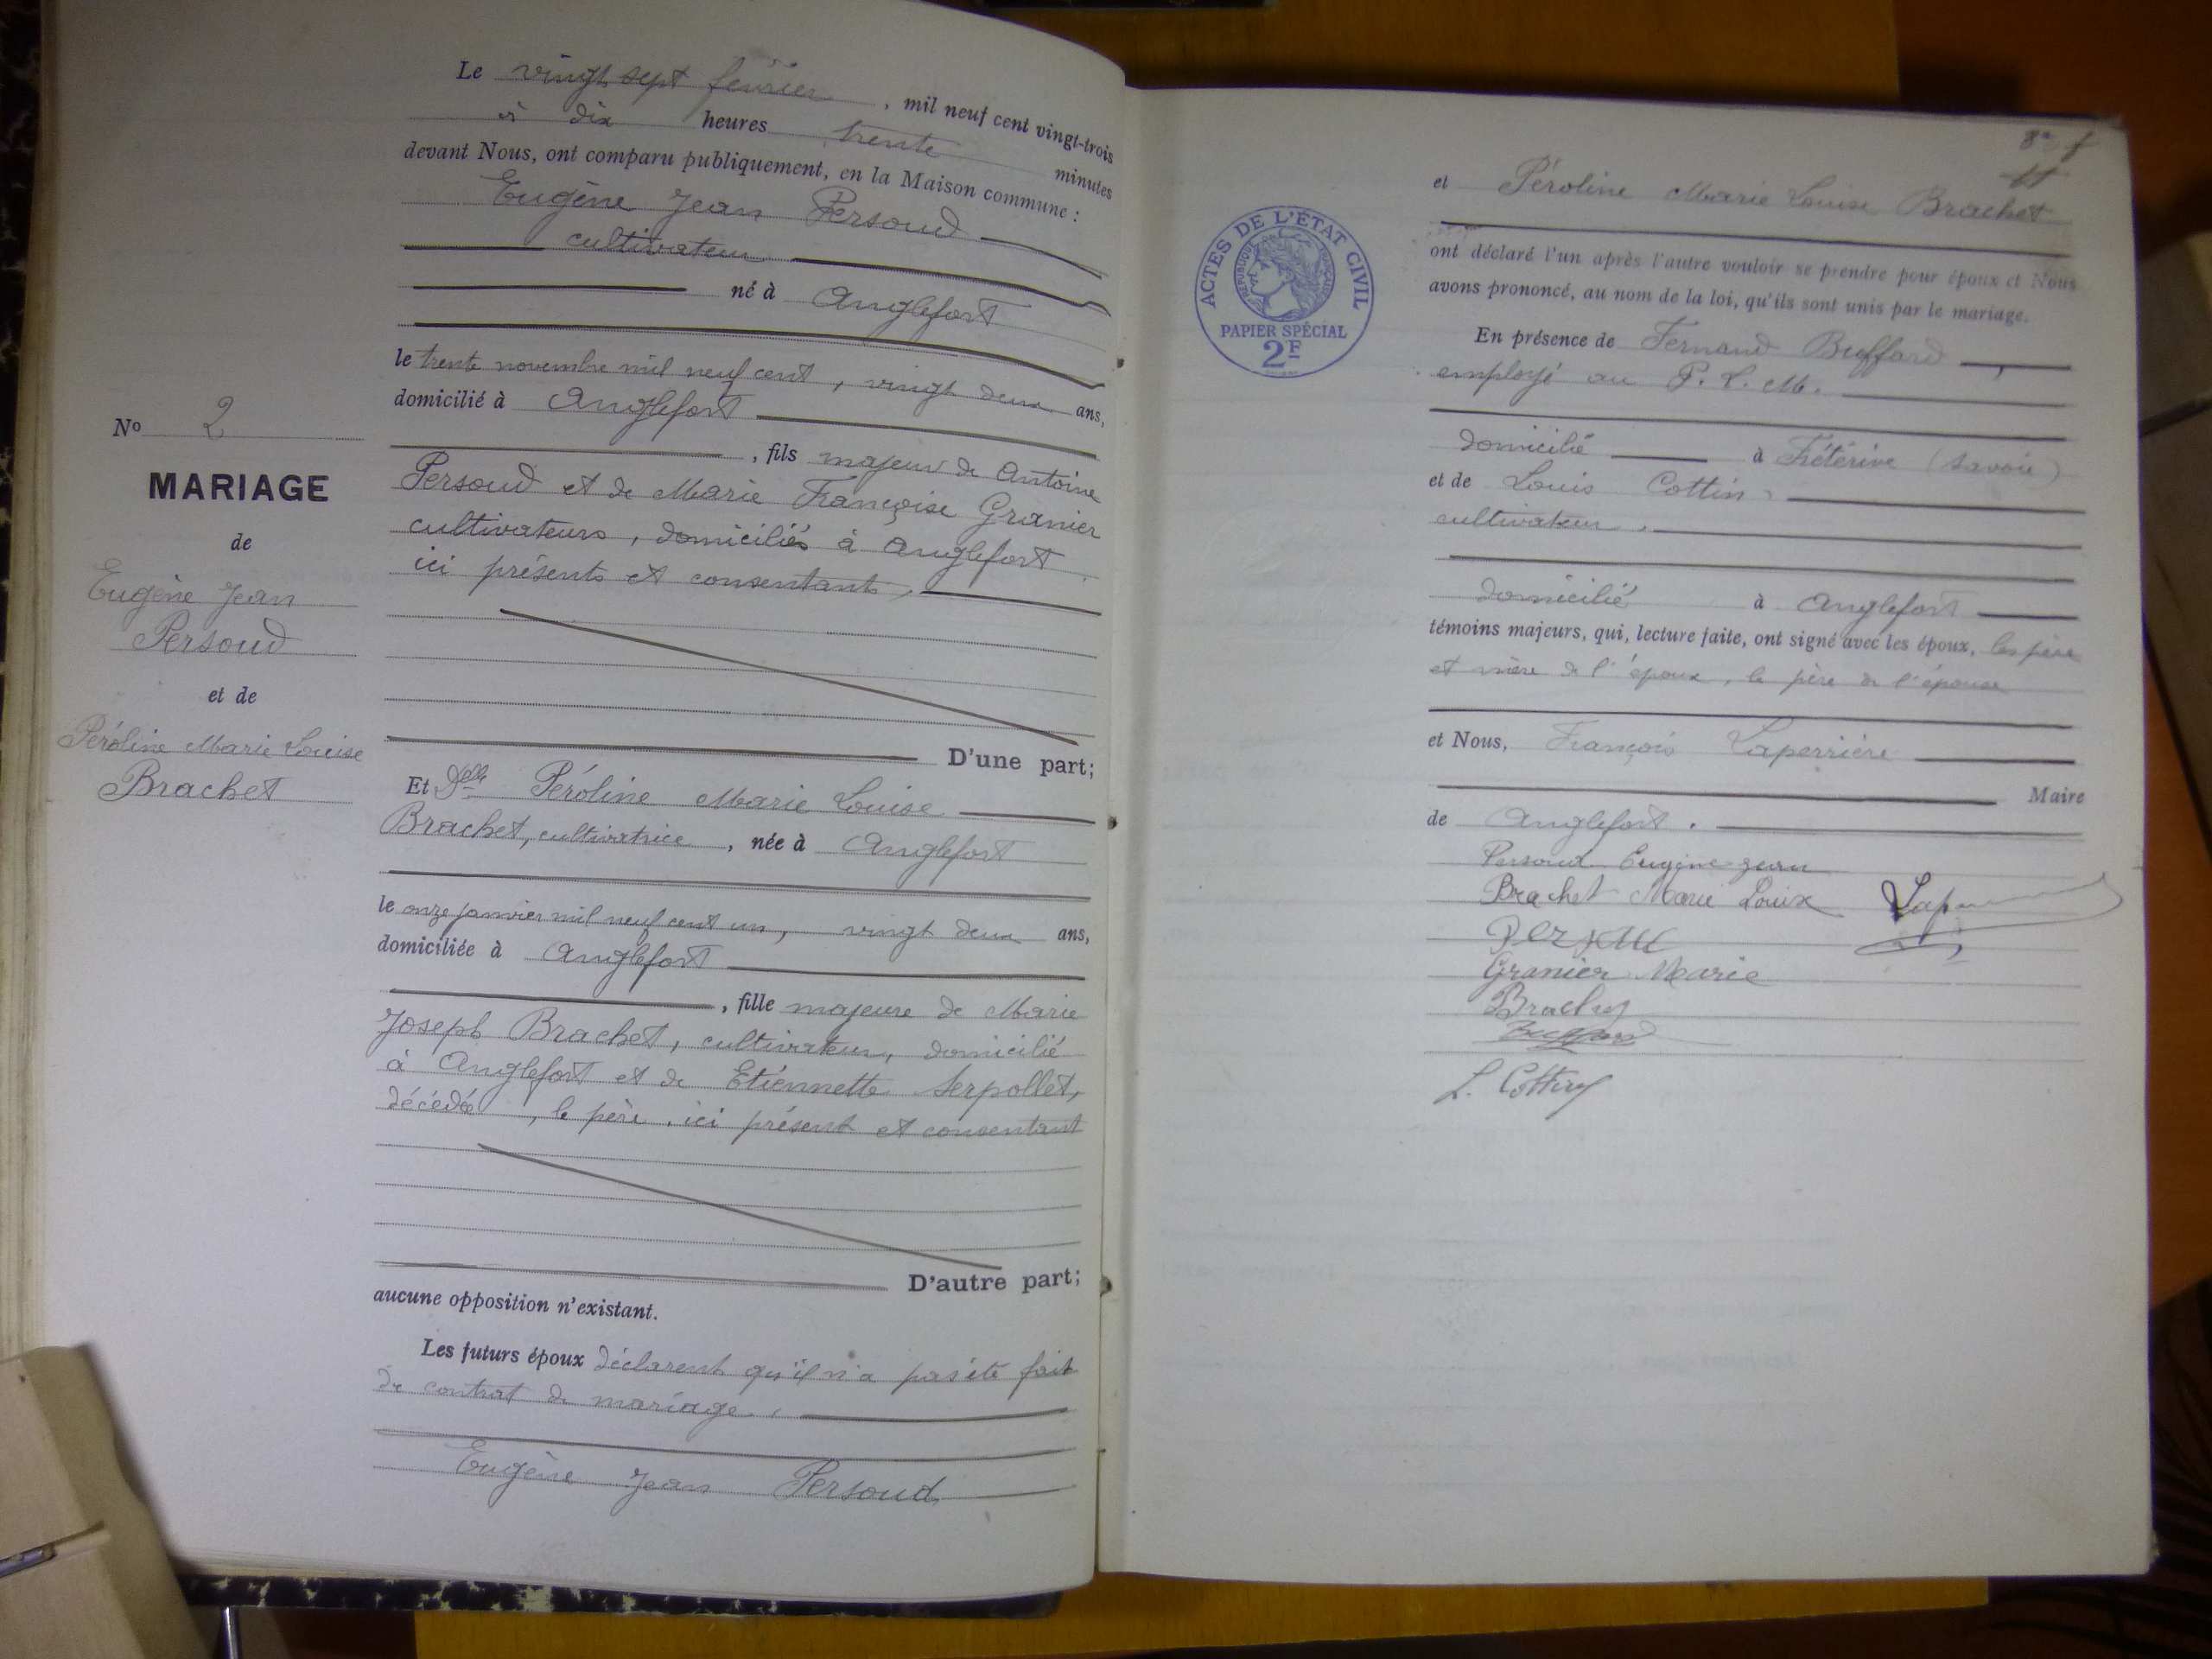 Le vingt sept février, mil neuf cent vingt-trois
à dix heures trente minutes
devant Nous, ont comparu publiquement, en la Maison commune :
Eugène Jean Persoud
cultivateur
né à Anglefort
le trente novembre mil neuf cent, vingt deux ans,
domicilié à Anglefort
, fils majeur de Antoine
Persoud et de Marie Françoise Granier
cultivateurs, domiciliés à Anglefort
ici présents et consentants,
D'une part;
Nº 2
MARIAGE
de
Eugène Jean
Persoud
et de
Péroline Marie Louise
Brachet
Et Delle Péroline Marie Louise
Brachet, cultivatrice, née à Anglefort
le onze janvier mil neuf cent un, vingt deux ans,
domiciliée à Anglefort
, fille majeure de Marie
Joseph Brachet, cultivateur, domicilié
à Anglefort et de Etiennette Serpollet,
décédée, le père, ici présent et consentant
D'autre part;
aucune opposition n'existant.
Les futurs époux déclarent qu'il n'a pas été fait
de contrat de mariage.
Eugène Jean Persoud
8e f
11
et Péroline Marie Louise Brachet
ont déclaré l'un après l'autre vouloir se prendre pour époux et Nous
avons prononcé, au nom de la loi, qu'ils sont unis par le mariage.
ACTES DE L'ÉTAT CIVIL
RÉPUBLIQUE FRANÇAISE
PAPIER SPÉCIAL
2F
En présence de Fernand Buffard,
employé au P. L. M.
domicilié à Fréterive (Savoie)
et de Louis Cottin,
cultivateur,
domicilié à Anglefort
témoins majeurs, qui, lecture faite, ont signé avec les époux, les père
et mère de l'époux, le père de l'épouse
et Nous, François Laperrière
Maire
de Anglefort.
Persoud Eugène jean
Brachet Marie Louise
Granier Marie
Brachet
Buffard
L. Cottin